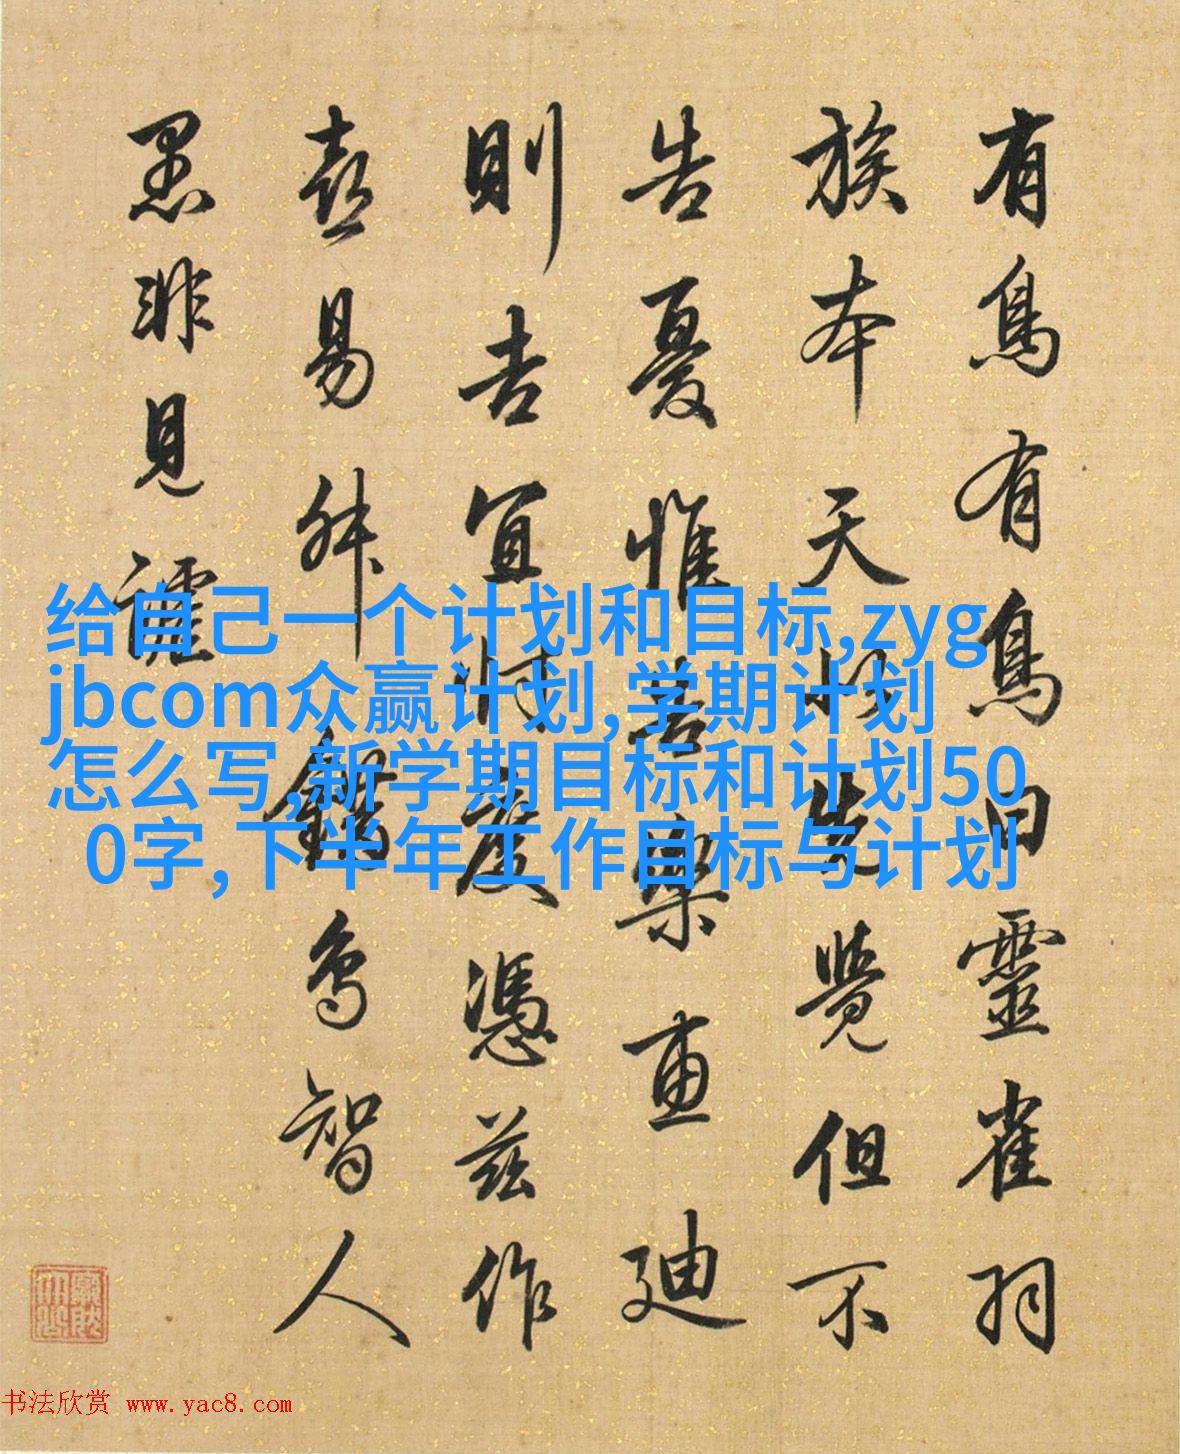 有鳥有鳥曰靈雀羽
族本天先覺但不
告憂惟告樂惠迪
則吉宜時憑茲作
喜易鳥智人
愚非見
给自己一个计划和目标,zyg
jbcom众赢计划,学期计划
怎么写,新学期目标和计划50
0字,下半年工作目标与计划
书法欣赏 www.yac8.com